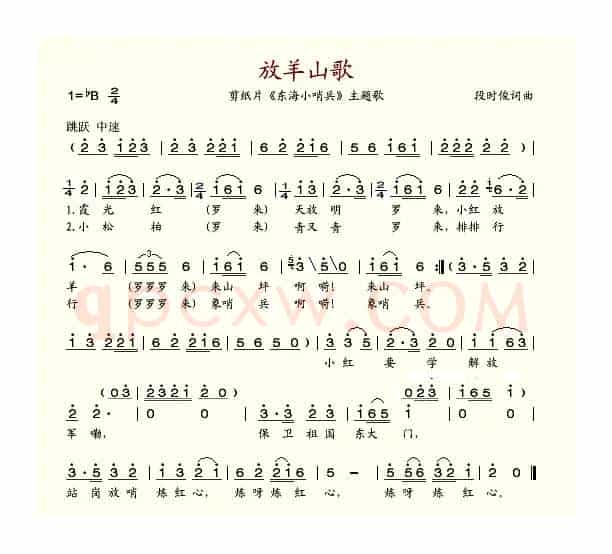 放羊山歌
1=♭B 2/4 剪纸片《东海小哨兵》主题歌 段时俊词曲
跳跃 中速
( 2 3 1 2 3 | 2 3 2 2 1 | 6 2 2 1 6 | 5 6 1 6 1 | 2 2 2 2 2 2 ) |
1/4 2 | 1 2 3 | 2 · 3 | 2/4 1 6 1 6 | 1/4 5 1 | 3 · 2 | 2/4 1 6 1 6 | 1 2 3 2 2 6 · 2 |
1.霞 光 红 (罗 来) 天放 明 罗 来,小红 放
2.小 松 柏 (罗 来) 青又 青 罗 来,排排 行
1 · 6 | 5 5 5 6 | 1 6 1 6 | 3 5 0 | 1 6 1 6 :| ( 3 · 5 3 2 |
羊 (罗罗罗 来) 来山 坪 啊 唠! 来山 坪。
行 (罗罗罗 来) 象哨 兵 啊 唠! 象哨 兵。
qpcxw.COM
1 3 2 2 1 | 6 2 2 1 6 | 5 6 1 6 1 | 5 0 5 0 ) | 3 5 | 2 · 3 2 | 1 1 6 3 |
小红 要 学 解放
( 0 3 | 2 3 2 1 2 0 ) 0 2 3 1 6 5 1 |
2 2 · | 0 0 | 3 · 3 2 2 | 1 6 5 1 | 0 0 |
军 嘞, 保 卫 祖国 东大 门,
3 · 5 3 2 | 1 3 2 1 | 6 2 2 1 6 | 5 – | 5 5 6 3 2 1 | 2 0 ‖
站 岗 放哨 炼红 心, 炼呀 炼红 心, 炼呀 炼红 心。